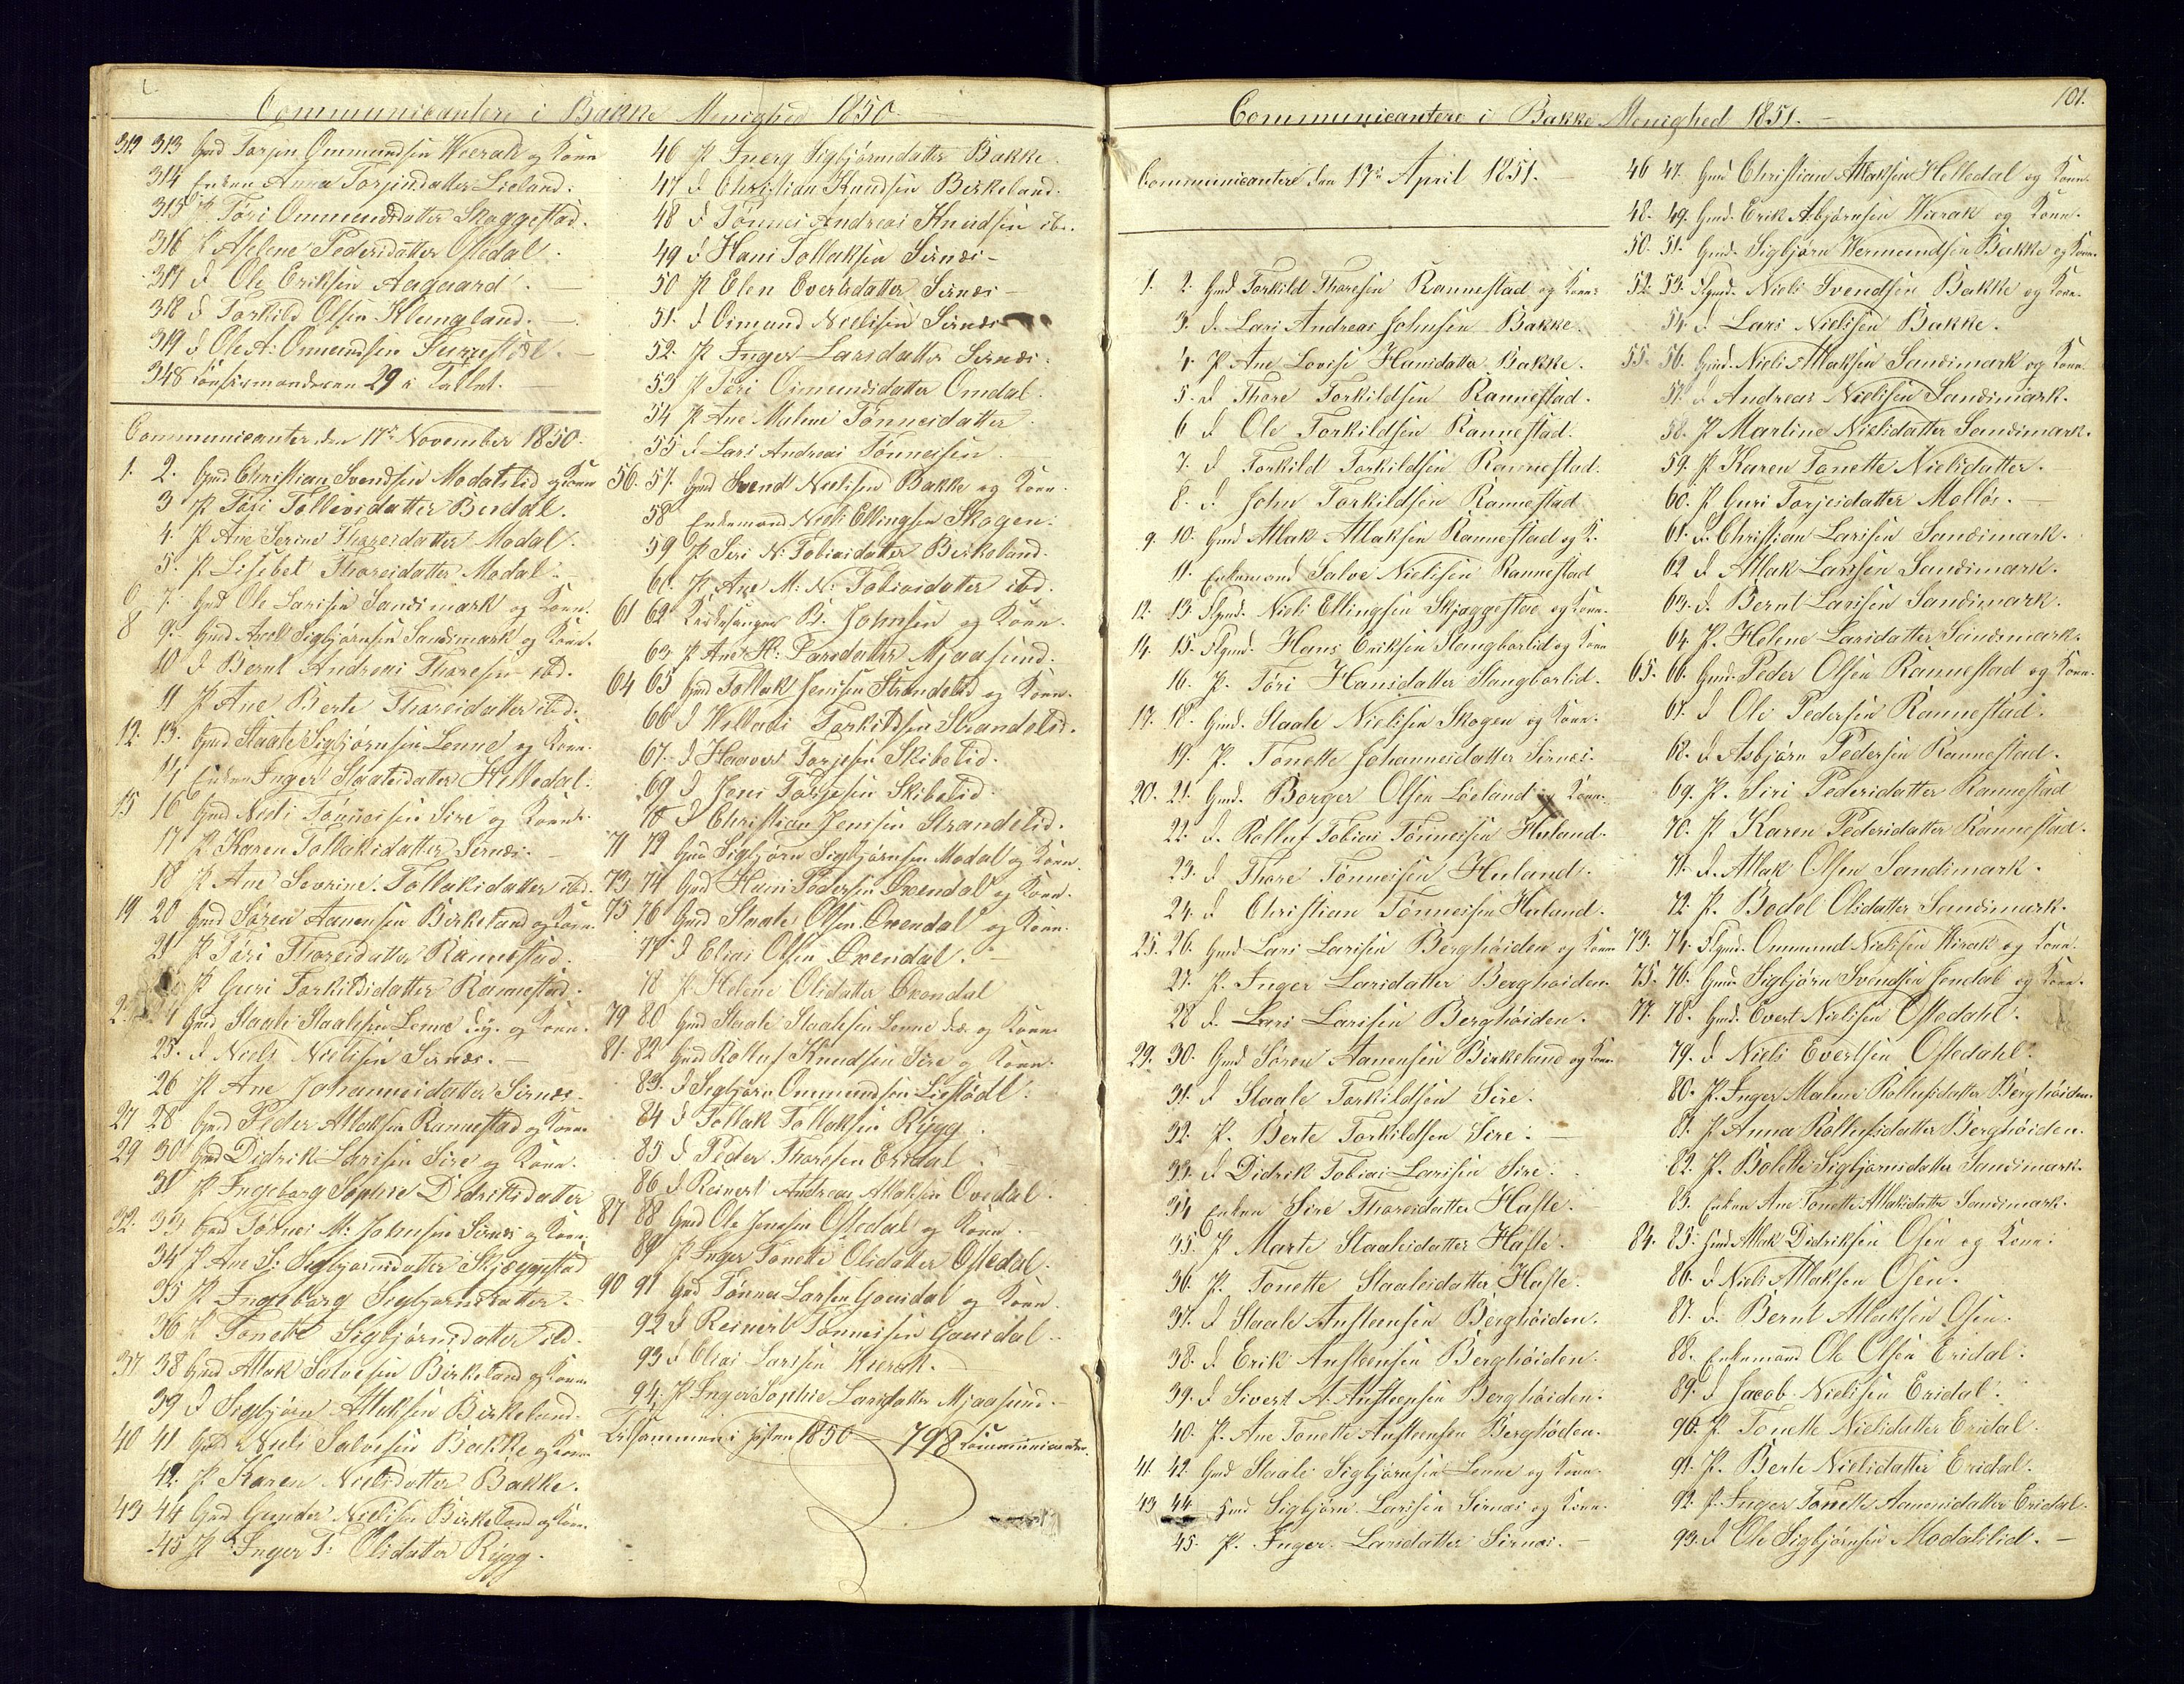 Communicantere i Bakke Menighed 1850.
312 313 Gmd Torjen Ommundsen Wierak og Kone
314 Enken Anna Torjusdatter Lieland.
315 P. Töri Ommundsdatter Skaggestad.
316 P. Helene Pedersdatter Ostedal.
317 D Ole Eriksen Aagaard.
318 D Torkild Olsen Klungland.
319 D Ole A: Ommundsen
348 Confirmanderne 29 i Tallet.
Communicanter den 17de November 1850.
1. 2. Gmd Christian Svendsen Modalslid og Kone
3 P Töri Tollevsdatter Birdal.
4. P. Ane Serine Thoresdatter Modal.
5. P. Lisebet Thoresdatter Modal.
6 7. Gmd Ole Larsen Sandsmark og Kone.
8 9. Gmd Sigbjørnsen Sandsmark og Kone.
10 D Bernt Andreas Thoresen ibd.
11 P Ane Berte Thoresdatter ibd.
12. 13. Gmd Staale Sigbjørnsen Lenne og Kone.
14 Enken Inger Staalesdatter Helledal.
15 16 Gmd Niels Tønnesen Sire og Kone.
17 P. Karen Tollaksdatter Sirnæs.
18 P Ane Severine Tollaksdatter ibd.
19 20 Gmd Søren Aanensen Birkeland og Kone.
21 P Töri Thoresdatter Rannestad.
P Guri Torkildsdatter Rannestad.
Gmd Staale Staalesen Lenne og Kone.
25. D Niels Nielsen Sirnæs.
26 P Ane Johannesdatter Sirnæs.
27 28 Gmd Peder Atlaksen Rannestad og Kone
29 30 Gmd Didrik Larsen Sire og Kone.
31 P Ingeborg Sophie Didriksdatter
32. 33 Gmd Tønnes M: Johnsen Sirnæs og Kone.
34 P Ane S: Sigbjørnsdatter Skjeggestad
35 P Ingeborg Sigbjørnsdatter.
36 P Tonette Sigbjørnsdatter ibd.
37 38 Gmd Atlak Salvesen Birkeland og Kone
39 D Sigbjørn Atlaksen Birkeland.
40 41 Gmd Niels Salvesen Bakke og Kone
42. P Karen Nielsdatter Bakke.
43 44 Gmd Gunder Nielsen Birkeland og Kone
45 P Inger T: Olsdatter Rygg.
46 P Inerg Sigbjørnsdatter Bakke.
47 D Christian Knudsen Birkeland.
48 D Tønnes Andreas Knudsen ibd.
49 D Hans Tollaksen Sirnæs
50 P Elen Evertsdatter Sirnæs
51. D Osmund Nielsen Sirnæs
52. P Inger Larsdatter Sirnæs.
53 P Töri Osmundsdatter Omdal.
54 P Ane Malene Tønnesdatter
55 D Lars Andreas Tønnesen
56. 57. Gmd Svend Nielsen Bakke og Kone.
58 Enkemand Niels Ellingsen Skogen.
59 P Siri N. Tobiasdatter Birkeland.
60 P. Ane M: N: Tobiasdatter ibd.
61 62 Kirkesanger B: Johnsen og Kone.
63 P Ane H: Larsdatter Mjaasund.
64 65 Gmd Tollak Jensen Strandslid og Kone.
66 D Willads Torkildsen Strandslid.
67. D Haaver Torjesen Skibslid.
69 D Jens Torjesen Skibslid.
70 D Christian Jensen Strandslid.
71 72 Gmd Sigbjørn Sigbjørnsen Modal og Kone
73 74 Gmd Hans Pedersen Oxendal og Kone.
75 76 Gmd Staale Olsen Oxendal og Kone.
77 D Elias Olsen Oxendal.
78 P. Helene Olsdatter Oxendal
79 80 Gmd Staale Staalesen Lenne og Kone
81. 82 Gmd Rolluf Knudsen Sire og Kone.
83. D Sigbjørn Ommundsen
84 D Tollak Tollaksen Rygg.
85 D Peder Thoresen Eridal
86 D Reinert Andreas Atlaksen Ovedal.
87 88 Gmd Ole Jensen Ostedal og Kone.
89 P Inger Tonette Olsdatter Ostedal.
90 91 Gmd Tønnes Larsen Gausdal og Kone.
92 D Reinert Tønnesen Gausdal.
93 D Elias Larsen Wierak.
94. P Inger Sophie Larsdatter Mjaasund.
Tilsammen i Høsten 1850 — 798 Communicanter.
101.
Communicantere i Bakke Menighed 1851.
Communicantere den 17de April 1851.
1. 2. Gmd Torkild Thoresen Rannestad og Kone
3. D. Lars Andreas Johnsen Bakke.
4. P. Ane Lovise Hansdatter Bakke.
5. D Thore Torkildsen Rannestad.
6 D. Ole Torkildsen Rannestad.
7. D Torkild Torkildsen Rannestad.
8. D. John Torkildsen Rannestad
9. 10. Gmd Atlak Atlaksen Rannestad og K.
11. Enkemand Salve Nielsen Rannestad
12. 13. Flgmd. Niels Ellingsen Skjæggestad og Kone.
14. 15. Flgmd. Hans Eriksen Slangborlid og Kone
16. P. Töri Hansdatter Slangborlid.
17. 18. Gmd. Staale Nielsen Skogen og Kone.
19. P. Tonette Johannesdatter Sirnæs.
20. 21. Gmd. Borger Olsen Löeland og Kone.
22. D. Rolluf Tobias Tønnesen Huland.
23. D Thore Tønnesen Huland.
24. D Christian Tønnesen Huland.
25. 26. Gmd Lars Larsen Berghøiden og Kone
27. P. Inger Larsdatter Berghøiden.
28 D. Lars Larsen Berghøiden.
29. 30. Gmd Søren Aanensen Birkeland og Kone
31. D Staale Torkildsen Sire.
32. P. Berte Torkildsen Sire.
33. D Didrik Tobias Larsen Sire.
34 Enken Sire Thoresdatter Hafte.
35. P Marte Staalesdatter Hafte.
36. P. Tonette Staalesdatter Hafte.
37. D Staale Austensen Berghøiden.
38. D. Erik Austensen Berghøiden.
39. D Sivert A. Austensen Berghøiden.
40. P. Ane Tonette Austensen Berghøiden.
41. 42. Gmd Staale Sigbjørnsen Lenne og Kone.
43 44 Gmd Sigbjørn Larsen Sirnæs og Kone.
45. P. Inger Larsdatter Sirnæs.
46 47. Gmd Christian Atlaksen Helledal og Kone.
48. 49. Gmd. Erik Asbjørnsen Wierak og Kone.
50. 51. Gmd. Sigbjørn Wermundsen Bakke og Kone.
52. 53. Flgmd. Niels Svendsen Bakke og Kone.
54. D Lars Nielsen Bakke.
55. 56. Gmd. Niels Atlaksen Sandsmark og Kone.
57. D Andreas Nielsen Sandsmark.
58. P Martine Nielsdatter Sandsmark.
59. P. Karen Tonette Nielsdatter.
60. P. Guri Torjesdatter Mollös.
61. D. Christian Larsen Sandsmark.
62 D Atlak Larsen Sandsmark.
63. D. Bernt Larsen Sandsmark.
64 P. Helene Larsdatter Sandsmark.
65. 66. Gmd. Peder Olsen Rannestad og Kone.
67. D Ole Pedersen Rannestad.
68. D Asbjørn Pedersen Rannestad.
69. P. Siri Pedersdatter Rannestad
70. P Karen Pedersdatter Rannestad.
71. D. Atlak Olsen Sandsmark.
72. P. Bodel Olsdatter Sandsmark.
73. 74. Flgmd. Ommund Nielsen Wirak og Kone.
75. 76. Gmd. Sigbjørn Svendsen Sendal og Kone.
77. 78. Gmd. Evert Nielsen Ostedahl.
79. D Niels Evertsen Ostedahl.
80. P. Inger Malene Rollufsdatter Berghøiden.
81. P Anna Rollufsdatter Berghøiden.
82. P. Bolette Sigbjørnsdatter Sandsmark.
83. Enken Ane Tonette Atlaksdatter Sandsmark.
84. 85. Gmd Atlak Didriksen Osen og Kone.
86. D Niels Atlaksen Osen.
87. D. Bernt Atlaksen Osen.
88. Enkemand Ole Olsen Eridal.
89. D Jacob Nielsen Eridal.
90. P. Tonette Nielsdatter Eridal.
91. P. Berte Nielsdatter Eridal.
92. P. Inger Tonette Aanensdatter Eridal.
93. D Ole Sigbjørnsen Modalslid.